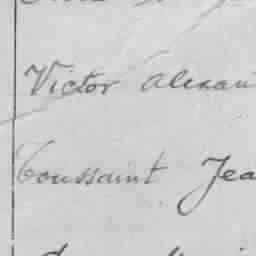 Victor alexan
Toussaint Jea